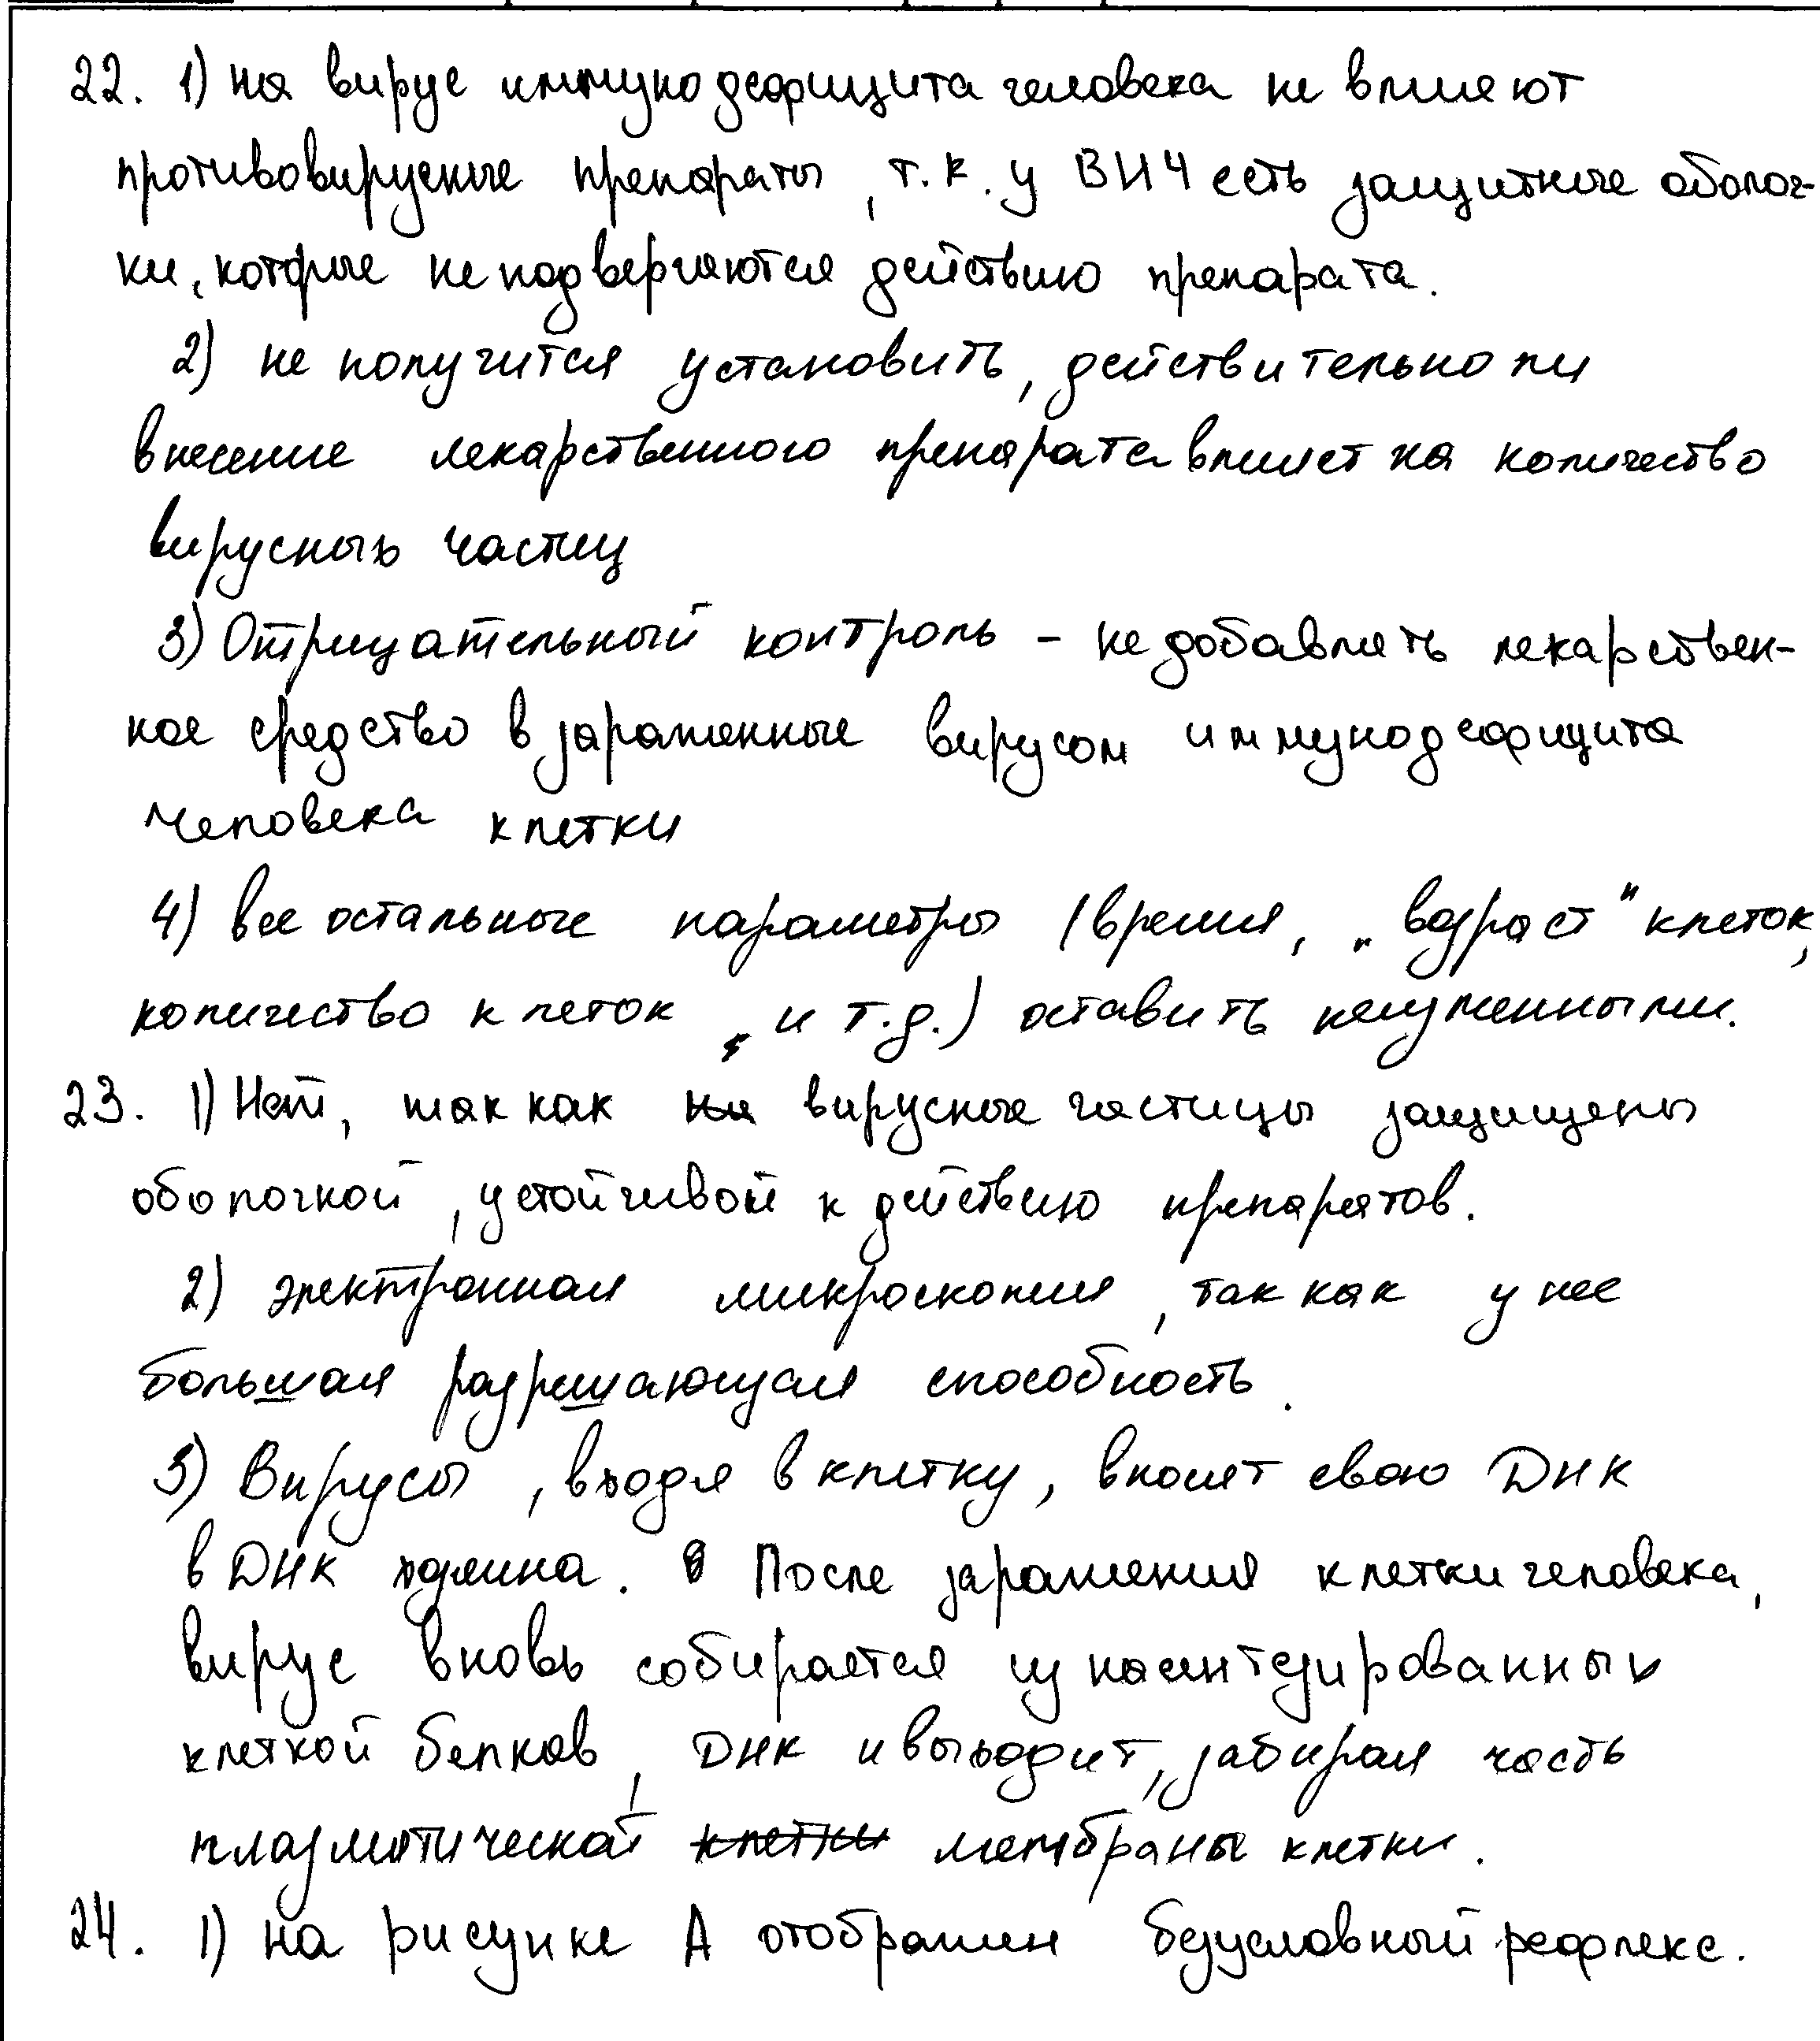 22. 1) на вирус иммунодефицита человека не влияют
противовирусные препараты, т.к. у ВИЧ есть защитные оболоч-
ки, которые не подвергаются действию препарата.
2) не получится установить, действительно ли
внесение лекарственного препарата влияет на количество
вирусных частиц
3) Отрицательный контроль - не добавлять лекарствен-
ное средство в зараженные вирусом иммунодефицита
человека клетки
4) все остальные параметры (время, „возраст" клеток,
количество клеток, и т.д.) оставить неизменными.
23. 1) Нет, так как на вирусные частицы защищены
оболочкой, устойчивой к действию препаратов.
2) электронная микроскопия, так как у нее
большая разрешающая способность.
3) Вирусы, входя в клетку, вносят свою ДНК
в ДНК хозяина. В После заражения клетки человека,
вирус вновь собирается из насинтезированных
клеткой белков, ДНК и выходит, забирая часть
плазматической клетки мембраны клетки.
24. 1) на рисунке А отображен безусловный рефлекс.